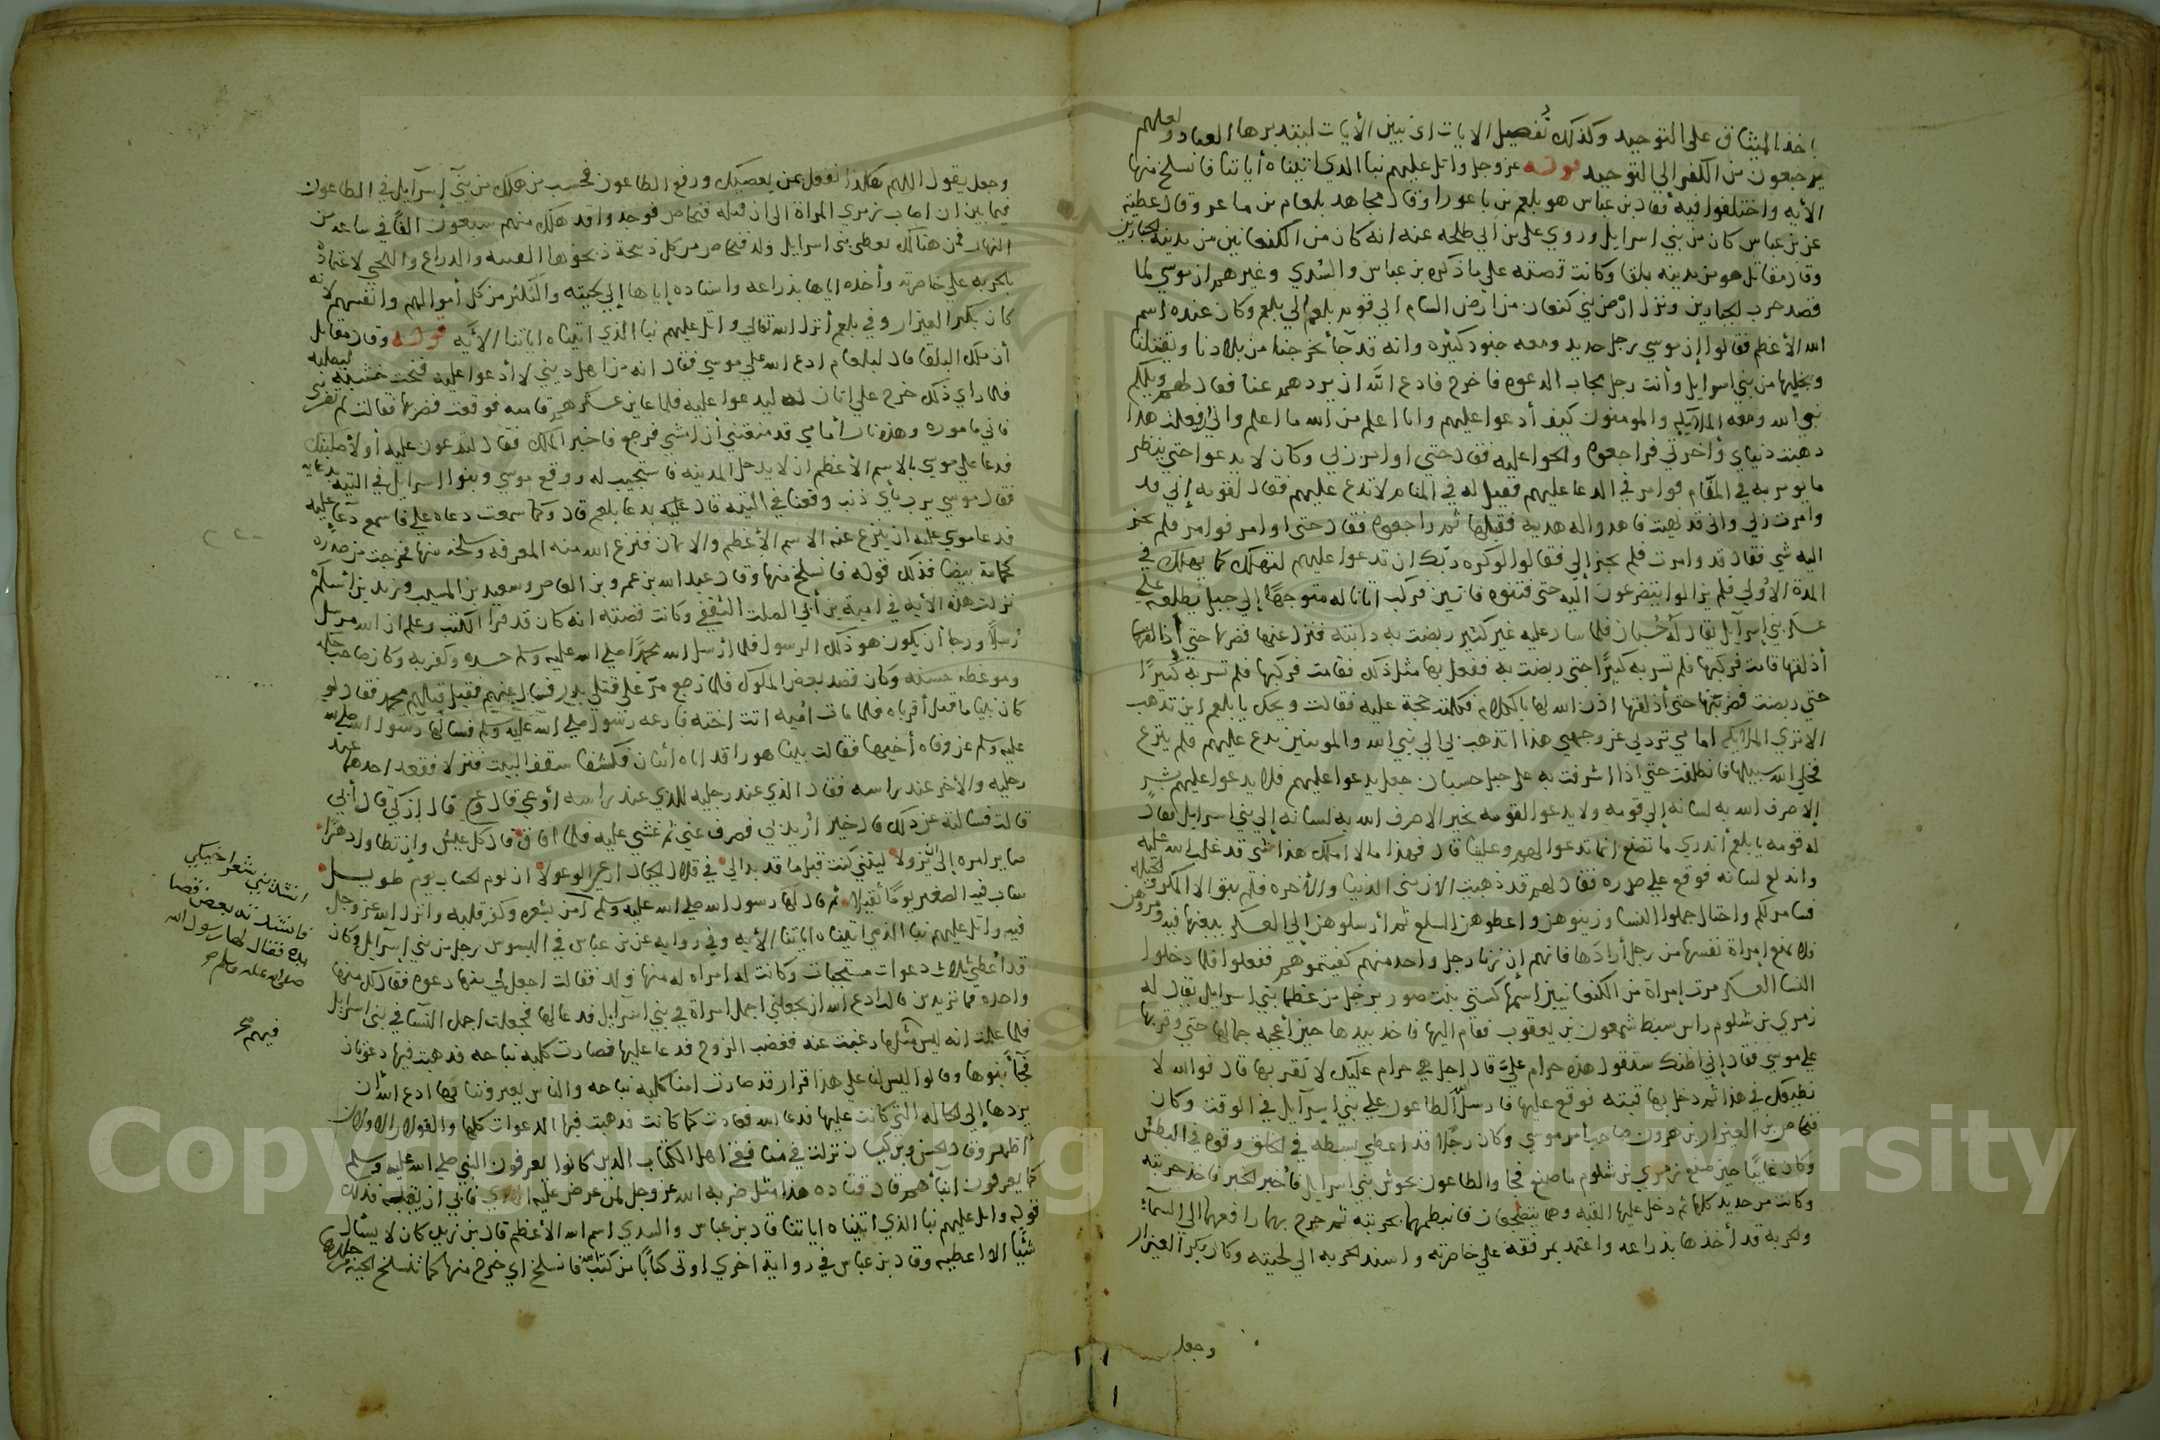 باخذ الميثاق على التوحيد وكذلك نفصل الايات اى نبين الأيات ليتدبرها العباد ولعلهم
يرجعون من الكفر الى التوحيد قوله عز وجل واتل عليهم نبا الذى اتيناه أياتنا فانسلخ منها
الأيه واختلفوا فيه فقال بن عباس هو بلعم بن باعورا وقال مجاهد بلعام بن باعر وقال عطيه
عن بن عباس كان من بني اسرايل وروي علي بن ابي طلحه عنه انه كان من الكنعانيين من مدينة الجبارين
وقال مقاتل هو من مدينه بلقا وكانت قصته علي ما ذكره بن عباس والسُدي وغيرهم ان موسي لما
قصد حرب الجبارين ونزل ارض بني كنعان من ارض الشام اتي قوم بلعم الي بلعم وكان عنده اسم
الله الأعظم فقالوا إن موسي رجل حديد ومعه جنود كثيره وانه قد جآ يخرجنا من بلادنا ويقتلنا
ويحلها من بني اسرايل وأنت رجل مجاب الدعوه فاخرج فادع الله ان يردهم عنا فقال لهم ويلكم
نبي الله ومعه الملايكه والمومنون كيف أدعوا عليهم وانا اعلم من الله ما اعلم واني إن فعلت هذا
ذهبت دنياي وأخرتي فراجعوه والحوا عليه فقال حتي اوامر ربي وكان لا يدعوا حتي ينظر
ما يومر به في المنام فوامر في الدعا عليهم فقيل له في المنام لا تدع عليهم فقال لقومه إني قد
وامرت ربي واني قد نهيت فاهدوا له هديه فقبلها ثم راجعوه فقال حتى اوامر فوامر فلم يجز
اليه شي فقال قد وامرت فلم يجز إلي فقالوا لو كره ربك ان تدعوا عليهم لنهاك كما نهاك في
المرة الاولي فلم يزالوا يتضرعون اليه حتي فتنوه فافتتن فركب اتانا له متوجهًا إلي جبل يطلعه علي
عسكر بني إسرآيل يقال له حُسبان فلما سار عليه غير كثير ربضت به دابته فنزل عنها فضربها حتي إذا اذلقها
أذلقها قامت فركبها فلم تسر به كثيرًا حتي ربضت به ففعل بها مثل ذلك فقامت فركبها فلم تسر به كثيرًا
حتي ربضت فضربها حتى أذلقها اذن الله لها بالكلام فكلمته حجة عليه فقالت ويحك يا بلعم اين تذهب
الا تري الملايكه امامي تردني عن وجهي هذا اتذهب بي الي نبي الله والمومنين تدع عليهم فلم ينزع
فخلى الله سبيلها فانطلقت حتي اذا اشرفت به على جبل حسبان جعل يدعوا عليهم فلا يدعوا عليهم بشر
إلا صرف الله به لسانه إلي قومه ولا يدعوا لقومه بخير الا صرف الله به لسانه إلي بني اسرايل فقال
له قومه يا بلعم أتدري ما تصنع انما تدعوا لهم وعلينا قال فهذا ما لا املك هذا شي قد غلب الله عليه
واندلع لسانه فوقع علي صدره فقال لهم قد ذهبت الان مني الدنيا والأخره فلم يبق الا المكر والحيله
فسامكر لكم واحتال جملوا النسا وزينوهن واعطوهن السلع ثم أرسلوهن إلي العسكر يبعنها فيه ومروهن
فلا تمنع إمراة نفسها من رجل أرادها فانهم إن زنا رجل واحد منهم كفيتموهم ففعلوا فلما دخلوا
النسا العسكر مرت إمراة من الكنعانيين إسمها كستي بنت صور برجل من عظما بني إسرايل يقال له
زمري بن شلوم راس سبط شمعون بن يعقوب فقام اليها فاخذ بيدها حين أعجبه جمالها حتي وقف بها
علي موسي فقال إني اظنك ستقول هذه حرام عليّ قال اجل هي حرام عليك لا تقربها قال فوالله لا
نطيعك في هذا ثم دخل بها قبته فوقع عليها فارسل الله الطاعون علي بني إسرآيل في الوقت وكان
فنحاص بن العيزار بن هرون صاحب امر موسي وكان رجلًا قد اعطي بسطه في الخلق وقوه في البطش
وكان غايبًا حين صنع زمري بن شلوم ما صنع فجا والطاعون يحوش بني اسرايل فأخبر الخبر فاخذ حربته
وكانت من حديد كلها ثم دخل عليها القبه وهما متضجعان فانتظمهما بحربته ثم خرج بهما رافعهما الي السمآء
والحربة قد أخذها بذراعه واعتمد بمرفقه علي خاصرته واسند الحربه الي لحيته وكان بكر العيزار
وجعل
وجعل يقول اللهم هكذا نفعل بمن يعصيك ورفع الطاعون فحسب من هلك من بني إسرآيل في الطاعون
فيما بين ان اصاب زمري المراة الى ان قتله فنحاص فوجدوا قد هلك منهم سبعون الفًا في ساعه من
النهار فمن هنالك يعطي بني اسرايل ولد فنحاص من كل ذبيحة ذبحوها القبه والدراع واللحي لاعتماده
بالحربه علي خاصرته وأخذه اياها بذراعه واسناده إياها إلي لحيته والبكر من كل أموالهم وانفسهم لانه
كان بكر العيزار وفي بلعم أنزل الله تعالي واتل عليهم نبا الذي اتيناه اياتنا الأيه قوله وقال مقاتل
أن ملك البلقا قال لبلعام ادع الله علي موسي فقال انه من اهل ديني لا أدعوا عليه فنحت خشبه ليصلبه
فلما راي ذلك خرج علي اتان له ليدعوا عليه فلما عاين عسكرهم قامت به فوقفت فضربها فقالت لم تضربني
فاني مامورة وهذه نار أمامي قد منعتني أن امشي فرجع فاخبر الملك فقال لتدعون عليه أو لأصلبنك
فدعا علي موسي بالاسم الأعظم ان لا يدخل المدينه فاستجيب له ووقع موسي وبنوا اسرايل في التيه بدعايه
فقال موسي يرب بأي ذنب وقعنا في التيه قال بدعا بلعم قال وكما سمعت دعاه علي فاسمع دعاي عليه
فدعا موسي عليه ان ينزع عنه الاسم الأعظم والايمان فنزع الله منه المعرفه وسلخه منها فخرجت من صدره
كحمامة بيضا فذلك قوله فانسلخ منها وقال عبد الله بن عمرو بن العاص وسعيد بن المسيب وزيد بن اسلم
نزلت هذه الأيه في امية بن أبي الصلت الثقفي وكانت قصته انه كان قد قرا الكتب وعلم ان الله مرسل
رُسلًا ورجا أن يكون هو ذلك الرسول فلما ارسل الله محمدًا صلي الله عليه وسلم حسده وكفر به وكان صاحب حكمه
وموعظه حسنه وكان قصد بعض الملوك فلما رجع مرّ علي قتلي بدر فسال عنهم فقيل قتلهم محمد فقال لو
كان نبيا ما قتل أقرباه فلما مات اميه اتت اخته فارعه رسول الله صلي الله عليه وسلم فسالها رسول الله صلي الله
عليه وسلم عن وفاه أخيها فقالت بينا هو راقد اتاه اثنان فكشفا سقف البيت فنزلا فقعد احدهما عند
رجليه والأخر عند راسه فقال الذي عند رجليه للذي عند راسه أوعي قال وعي قال ازكي قال أبي
قالت فسالته عن ذلك قال خير أريد بي فصرف عني ثم غشي عليه فلما افاق قال كل عيش وإن تطاول دهرًا
صاير امره إلي ان يزولا ليتني كنت قبل ما قد بدا لي في قلال الجبال ارعي الوعولا ان يوم الحساب يوم طويل
شاب فيه الصغير يومًا ثقيلا ثم قال لها رسول الله صلي الله عليه وسلم آمن شعره وكفر قلبه وانزل الله عز وجل
انشديني شعر اخيك
فانشدته بعض قصا
يده فقال لها رسول الله
صلى الله عليه وسلم
فيه واتل عليهم نبا الذي اتيناه اياتنا الأيه وفي روايه عن بن عباس في البسوس رجل من بني إسرآيل وكان
قد أعطي ثلاث دعوات مستجابات وكانت له امراه له منها ولد فقالت اجعل لي منها دعوه فقال لك منها
واحده فما تريدين قالت ادع الله ان يجعلني اجمل امراة في بني اسرآيل فدعا لها فجعلت اجمل النسآ في بني اسرايل
فلما علمت انه ليس فيهم مثلها رغبت عنه فغضب الزوج فدعا عليها فصارت كلبه نباحه فذهبت فيها دعوتان
فجآ بنوها وقالوا ليس لنا علي هذا قرار قد صارت امنا كلبه نباحه والناس يعيروننا بها ادع الله ان
يردها إلي الحاله التي كانت عليها فدعا الله فعادت كما كانت فذهبت فيها الدعوات كلها والقولان الاولان
اظهر وقال الحسن وبن كيسان نزلت في منافقي اهل الكتاب الدين كانوا يعرفون النبي صلي الله عليه وسلم
كما يعرفون ابنآهم قال قتاده هذا مثل ضربه الله عز وجل لمن عرض عليه الهدي فابي ان يقبله فذلك
قوله واتل عليهم نبا الذي اتيناه اياتنا قال بن عباس والسدي اسم الله الأعظم قال بن زيد كان لا يسال
شئيا الا اعطيه وقال بن عباس في رواية اخري اوتي كتابًا من كتب الله فانسلخ اي خرج منها كما تنسلخ الحيه من جلدها